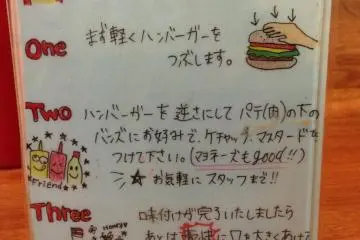 One
まず軽くハンバーガーを
つぶします。
Two
ハンバーガーを逆さにしてパテ(肉)の下の
バンズにお好みで、ケチャップ、マスタードを
つけて下さい。(マヨネーズもgood!!)
Friend
☆お気軽にスタッフまで!!
Three
味付けが完了いたしましたら
あとは豪快に口を大きくあけて